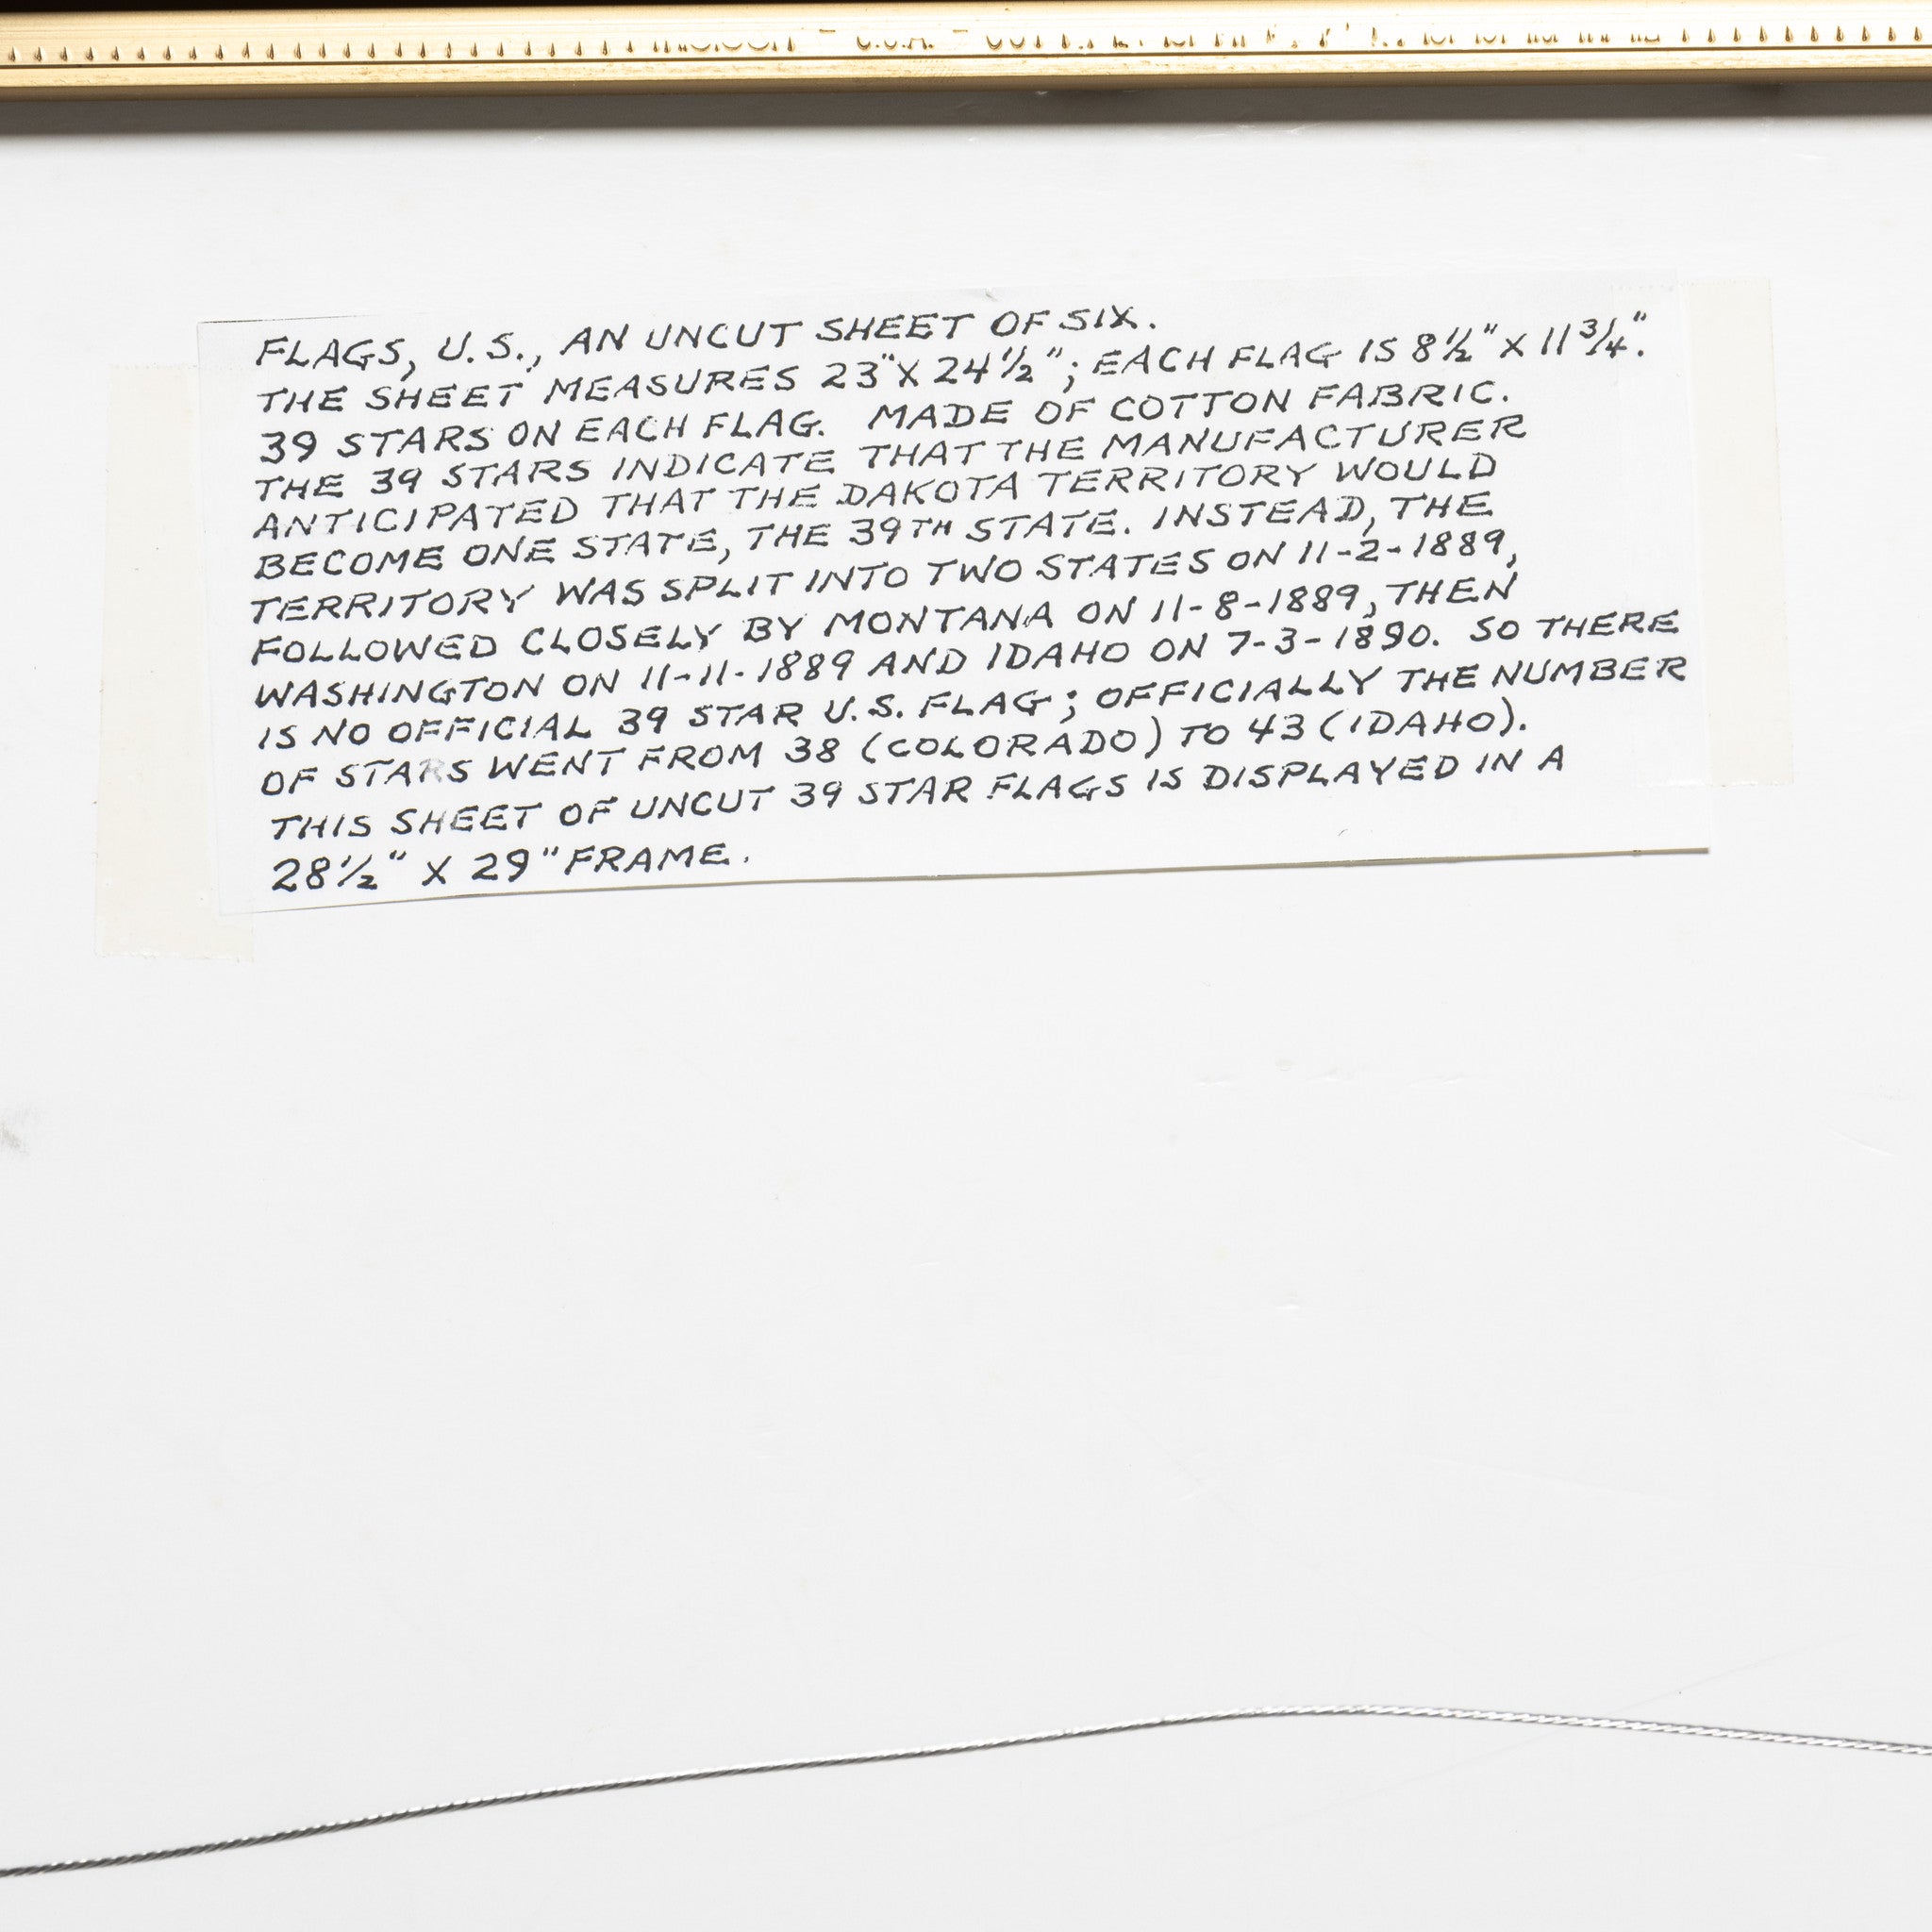 FLAGS, U.S., AN UNCUT SHEET OF SIX.
THE SHEET MEASURES 23" X 24 1/2"; EACH FLAG IS 8 1/2" X 11 3/4".
39 STARS ON EACH FLAG. MADE OF COTTON FABRIC.
THE 39 STARS INDICATE THAT THE MANUFACTURER
ANTICIPATED THAT THE DAKOTA TERRITORY WOULD
BECOME ONE STATE, THE 39TH STATE. INSTEAD, THE
TERRITORY WAS SPLIT INTO TWO STATES ON 11-2-1889,
FOLLOWED CLOSELY BY MONTANA ON 11-8-1889, THEN
WASHINGTON ON 11-11-1889 AND IDAHO ON 7-3-1890. SO THERE
IS NO OFFICIAL 39 STAR U.S. FLAG; OFFICIALLY THE NUMBER
OF STARS WENT FROM 38 (COLORADO) TO 43 (IDAHO).
THIS SHEET OF UNCUT 39 STAR FLAGS IS DISPLAYED IN A
28 1/2" X 29" FRAME.